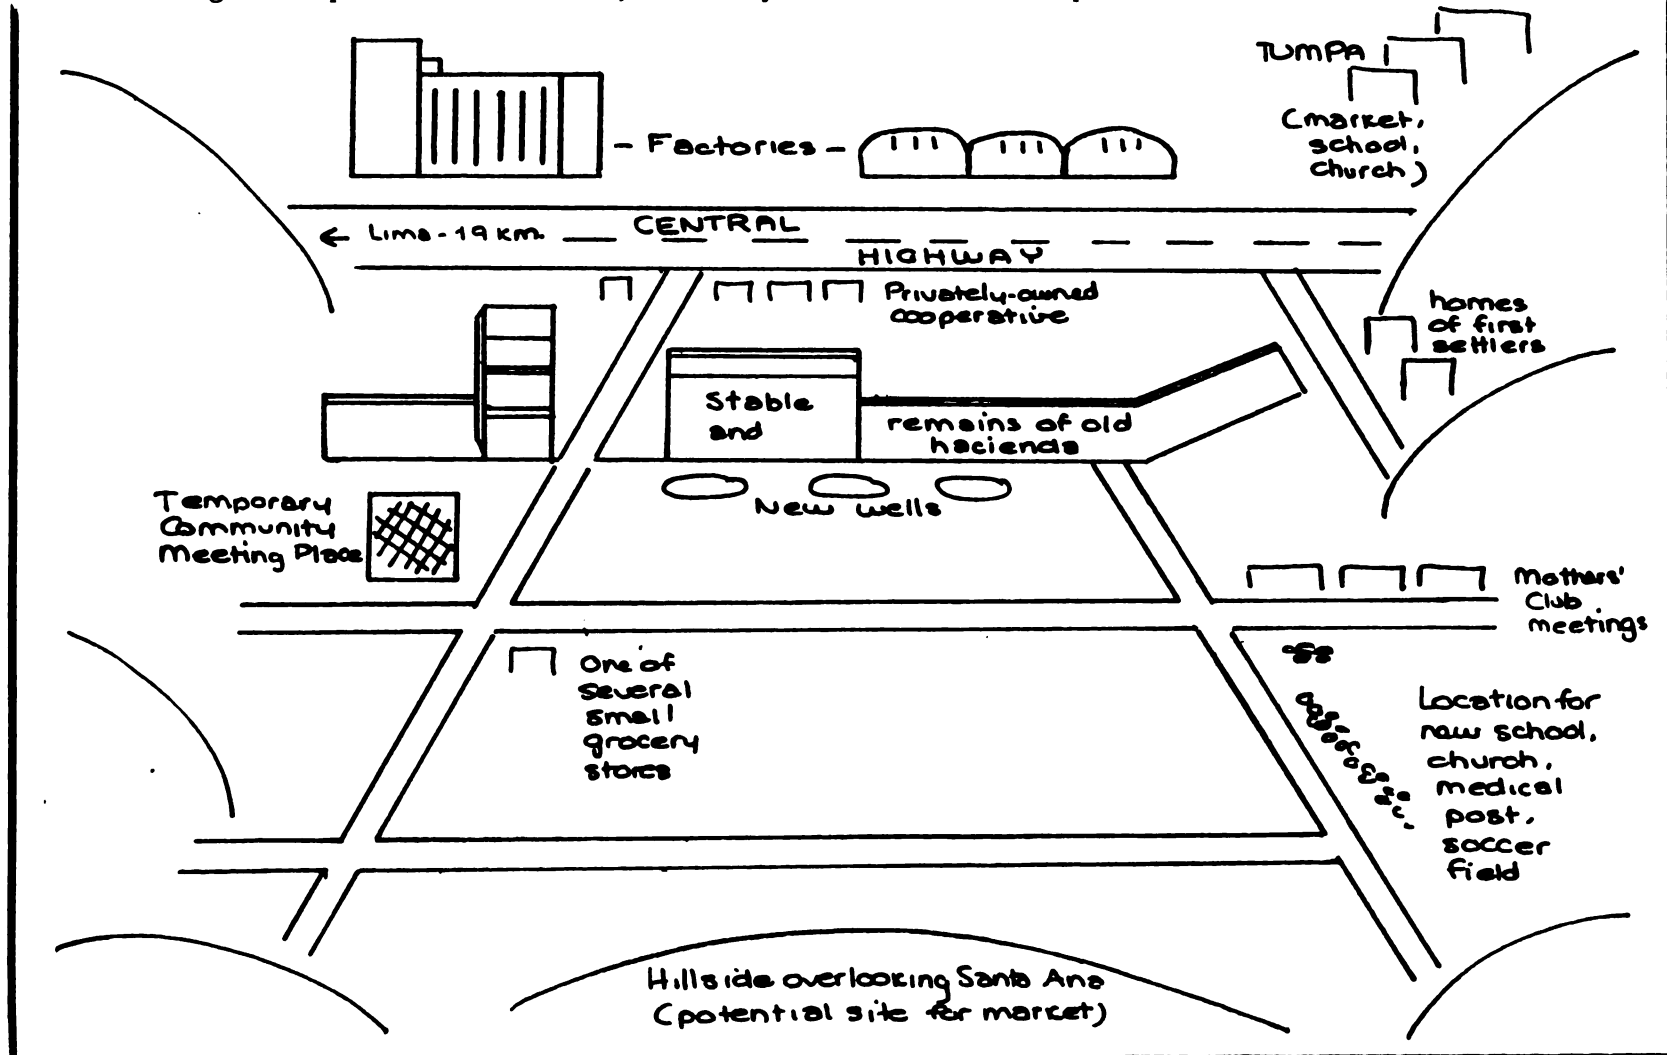 TUMPA
(market,
school,
church)
- Factories -
← Lima - 19 km.
CENTRAL
HIGHWAY
Privately-owned
cooperative
homes
of first
settlers
Stable
and
remains of old
hacienda
Temporary
Community
Meeting Place
New wells
Mothers'
Club
meetings
One of
several
small
grocery
stores
Location for
new school,
church,
medical
post,
soccer
field
Hillside overlooking Santa Ana
(potential site for market)